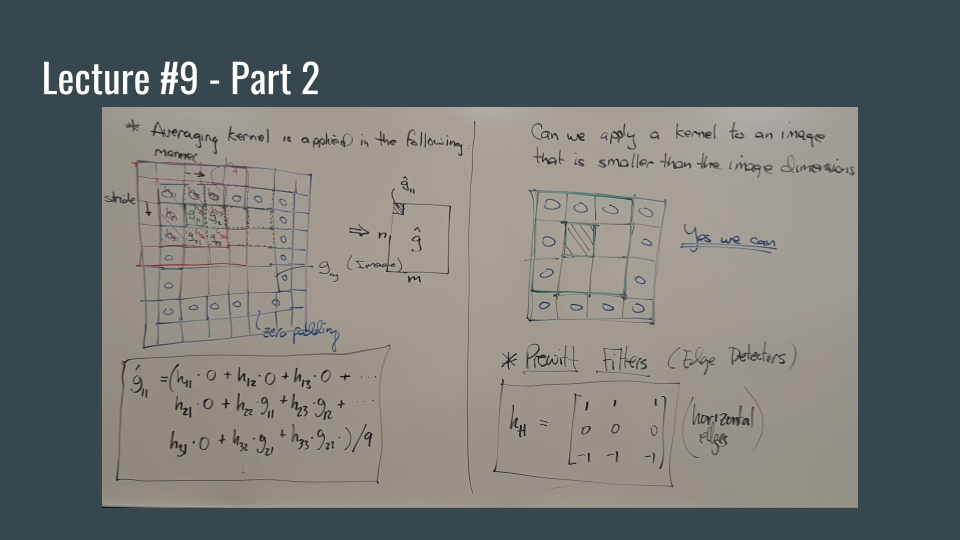 Lecture #9 - Part 2
* Averaging kernel is applied in the following
manner.
stride
0 0 0
0
0
0
0
0 0 0 0 0
g_xy (Image)
zero padding
⇒
ĝ₁₁
n ĝ
m
ĝ₁₁ = (h₁₁·0 + h₁₂·0 + h₁₃·0 + ···
h₂₁·0 + h₂₂·g₁₁ + h₂₃·g₁₂ + ···
h₃₁·0 + h₃₂·g₂₁ + h₃₃·g₂₂·)/9
Can we apply a kernel to an image
that is smaller than the image dimensions
0 0 0 0
0 0
0 0
0 0 0 0
Yes we can
* Prewitt Filters (Edge Detectors)
h_H = [ 1 1 1
0 0 0
-1 -1 -1 ]
(horizontal
edges)